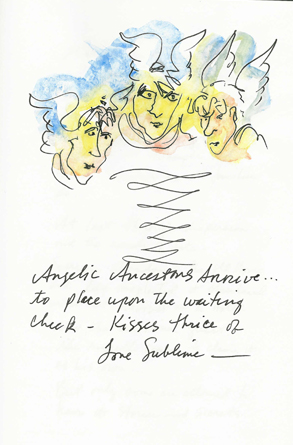 Angelic Ancestors Arrive...
to place upon the waiting
cheek - Kisses thrice of
Love Sublime —